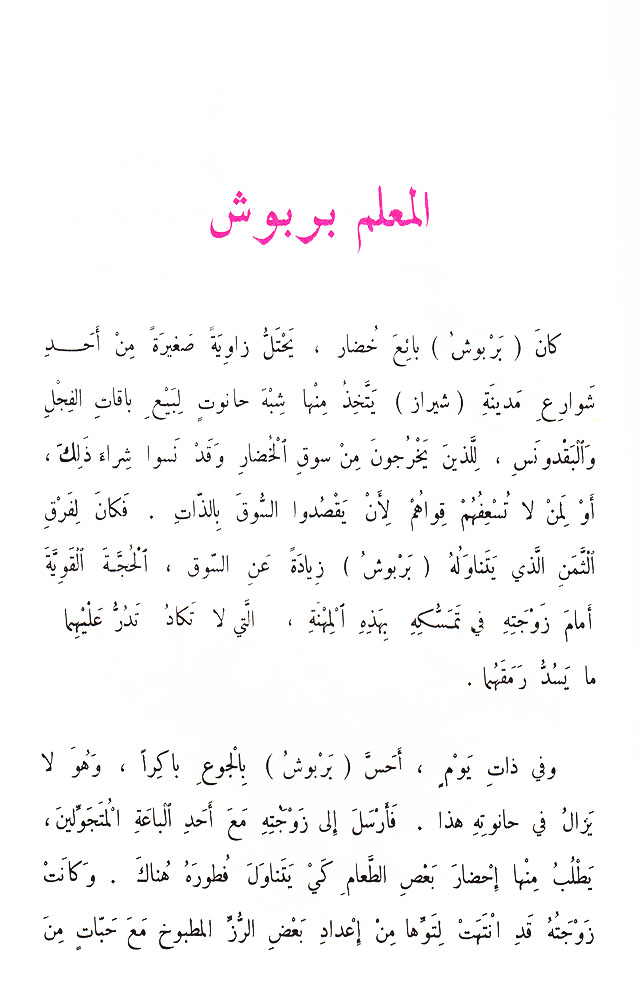 المعلم بربوش
كانَ ( بَرْبوشُ ) بائِعَ خُضار ، يَحْتَلُّ زاوِيَةً صَغيرَةً مِنْ أَحَــدِ
شَوارِعِ مَدينَةِ ( شيراز ) يَتَّخِذُ مِنْها شِبْهَ حانوتٍ لِبَيْعِ باقاتِ الفِجْلِ
وَٱلْبَقْدونَسِ ، لِلَّذينَ يَخْرُجونَ مِنْ سوقِ ٱلْخُضارِ وَقَدْ نَسوا شِراءَ ذَلِكَ ،
أَوْ لِمَنْ لا تُسْعِفُهُمْ قِواهُمْ لِأَنْ يَقْصُدوا السُّوقَ بِالذّاتِ . فَكانَ لِفَرْقِ
ٱلْثَّمَنِ الَّذي يَتَناوَلُهُ ( بَرْبوشُ ) زِيادَةً عَنِ السّوق ، ٱلْحُجَّةَ ٱلْقَوِيَّةَ
أَمامَ زَوْجَتِهِ في تَمَسُّكِهِ بِهَذِهِ ٱلْمِهْنَةِ ، الَّتي لا تَكادُ تَدُرُّ عَلَيْهِما
ما يَسُدُّ رَمَقَهُما .
وفي ذاتِ يَوْمٍ ، أَحَسَّ ( بَرْبوشُ ) بِالْجوعِ باكِراً ، وَهُوَ لا
يَزالُ في حانوتِهِ هذا . فَأَرْسَلَ إِلى زَوْجَتِهِ مَعَ أَحَدِ ٱلْباعَةِ ٱلْمُتَجَوِّلينَ،
يَطْلُبُ مِنْها إِحْضارَ بَعْضِ الطَّعامِ كَيْ يَتَناوَلَ فُطورَهُ هُناكَ . وَكانَتْ
زَوْجَتُهُ قَدِ انْتَهَتْ لِتَوِّها مِنْ إِعْدادِ بَعْضِ الرُّزِّ المطبوخ مَعَ حَبّاتٍ مِنَ